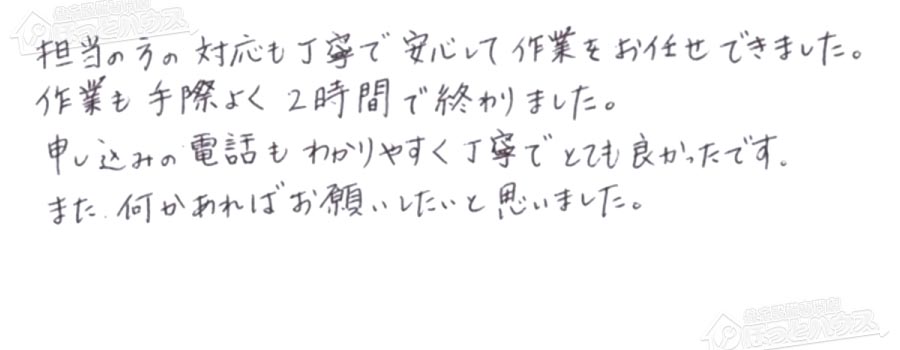 ほっとハウス
担当の方の対応も丁寧で安心して作業をお任せできました。
作業も手際よく2時間で終わりました。
申し込みの電話もわかりやすく丁寧でとても良かったです。
また、何かあればお願いしたいと思いました。
ほっとハウス